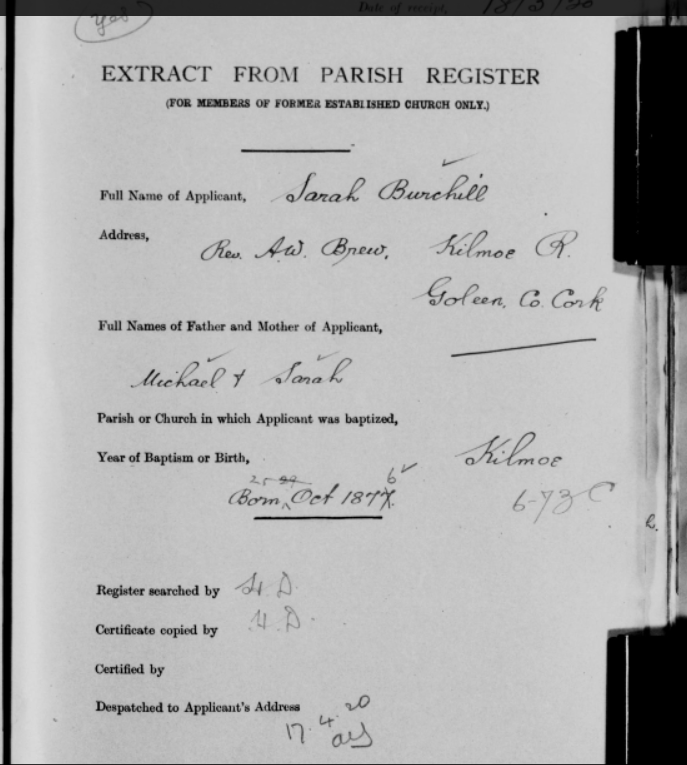 yes
Date of receipt, 18/3/20
EXTRACT FROM PARISH REGISTER
(FOR MEMBERS OF FORMER ESTABLISHED CHURCH ONLY.)
Full Name of Applicant, Sarah Burchill
Address,
Rev. A.W. Brew, Kilmoe R.
Goleen, Co. Cork
Full Names of Father and Mother of Applicant,
Michael & Sarah
Parish or Church in which Applicant was baptized,
Year of Baptism or Birth, Kilmoe
25 6
Born Oct 1877. 6-73 C
Register searched by H D
Certificate copied by H. D.
Certified by
Despatched to Applicant's Address
17.4.20